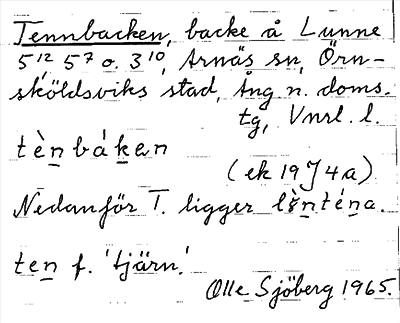 Tennbacken, backe å Lunne
5¹², 5⁷ o. 3¹⁰, Arnäs sn, Örn-
sköldsviks stad, Ång n. doms.
tg, Vnrl. l.
tènbáken
(ek 19 J 4a)
Nedanför T. ligger lšṉtéṉa.
teṉ f. 'tjärn.'
Olle Sjöberg 1965.